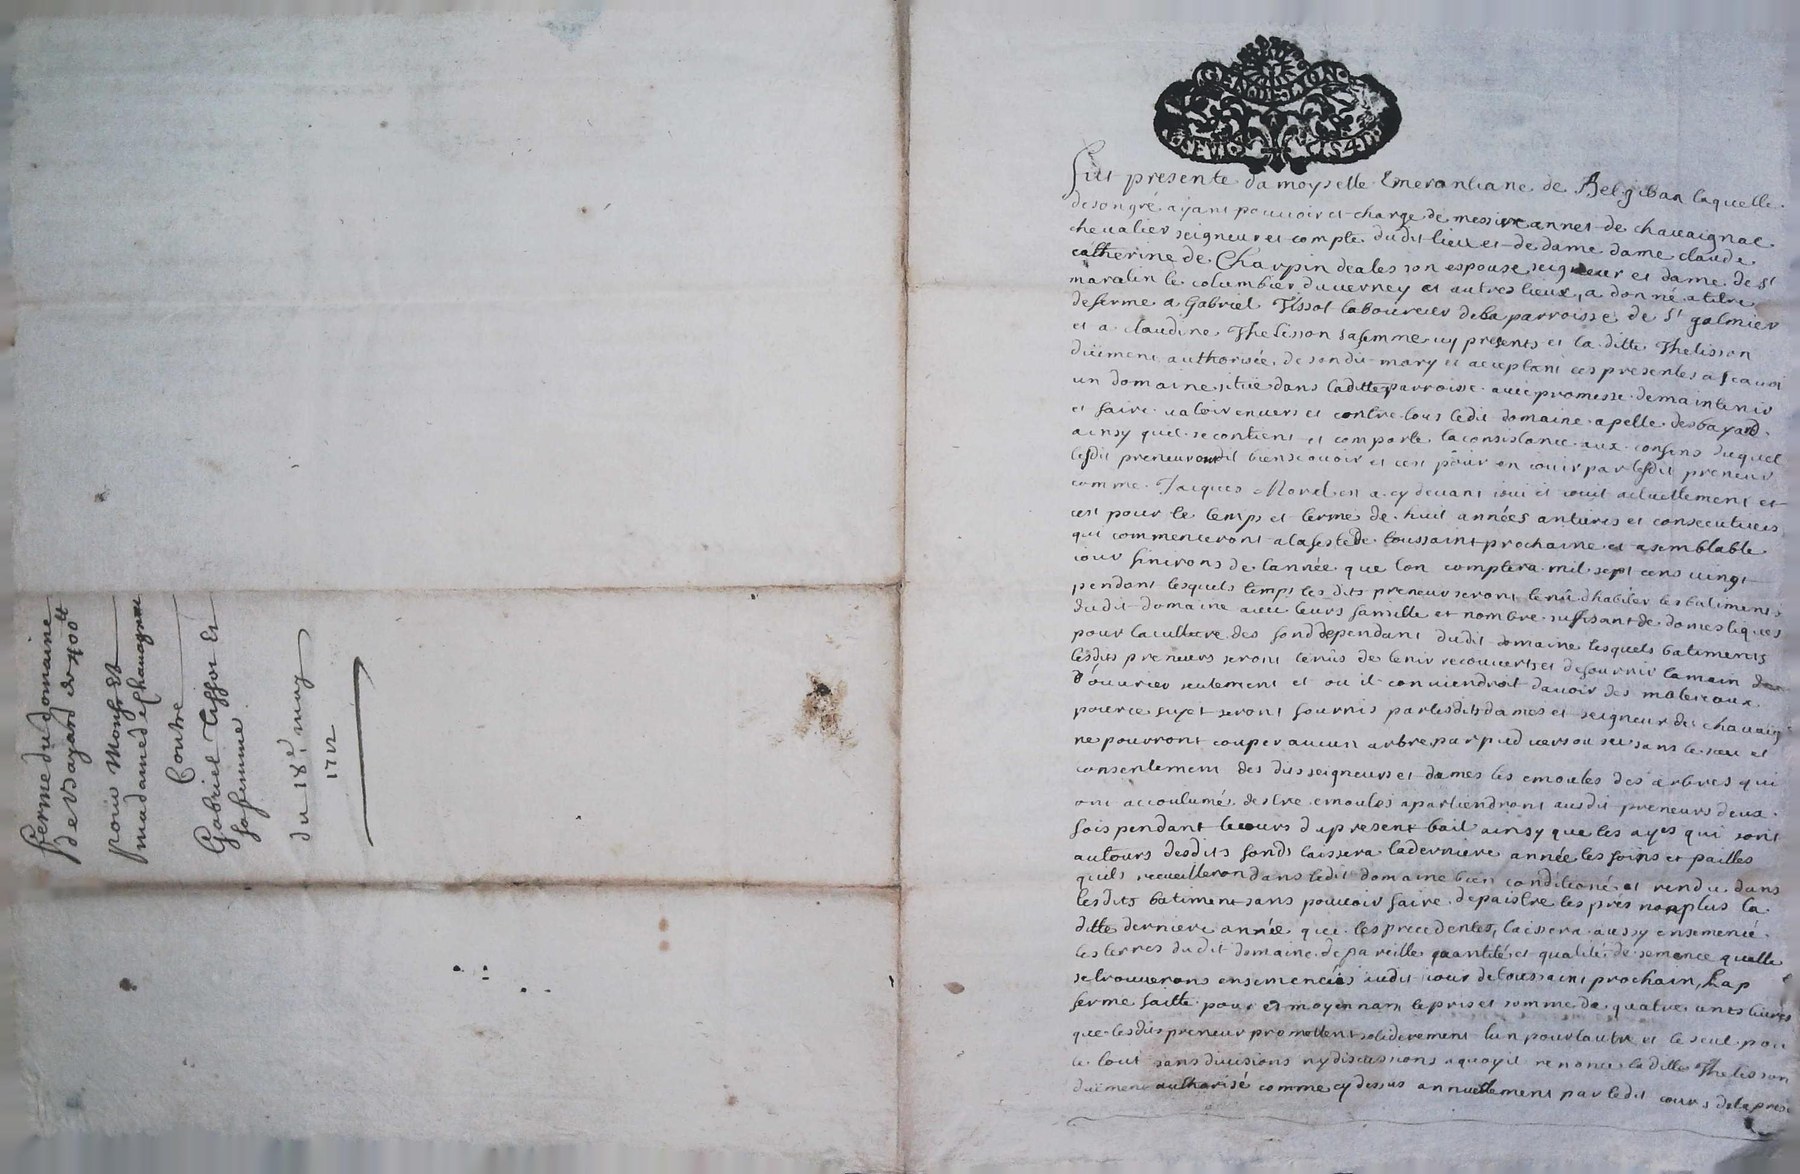 ferme du domaine
de Bayard de 400tt
Pour Monsr et
madame de Chauagnac
Contre
Gabriel Tissot et
sa femme
du 18e may
1712
GEN LION
Fut presente damoyselle Emerantiane de Belgiban laquelle
de son gré ayant pouuoir et charge de messire annet de chauaignac
cheualier seigneur et compte dudit lieu et de dame dame claude
catherine de Charpin deales son espouse seigneur et dame de st
maralin le columbier duuerney et autres lieux, a donné a titre
de ferme a Gabriel Tissot laboureur de la parroisse de st galmier
et a claudine Thelisson sa femme icy presents et la ditte Thelisson
düement authorisée de son dit mary et acceptant ces presentes ascauoir
un domaine situé dans laditte parroisse auec promesse de maintenir
et faire ualoir enuers et contre tous ledit domaine apellé des bayard
ainsy quil se contient et comporte la consistance aux confins duquel
lesdit preneur ont dit bien scauoir et cest pour en iouir par lesdit preneur
comme Jacques Morel en a cy deuant ioui et iouit actuellement et
cest pour le temps et terme de huit années antieres et consecutiues
qui commenceront a la feste de toussaint prochaine et a semblable
iour finirons de lannée que lon comptera mil sept cens uingt
pendant lesquels temps les dits preneur seront tenû dhabiter les batiments
dudit domaine auec leurs famille et nombre suffisant de domestiques
pour la culture des fond dependant dudit domaine lesquels batiments
lesdits preneurs seront tenûs de tenir recouuerts et de fournir la main
d'ouurier seulement et ou il conuiendroit dauoir des matereaux
pour ce sujet seront fournis par lesdits dames et seigneur de chauaig
ne pourront couper aucun arbre par pied uers ou sec sans le sceu et
consentement des dits seigneurs et dames les emoules des arbres qui
ont accoutumé destre emoulés apartiendront ausdit preneurs deux
fois pendant le cours du present bail ainsy que les ayes qui sont
autours desdits fonds laissera la derniere année les foins et pailles
quils recueilleron dans ledit domaine bien conditioné et rendu dans
lesdits batiment sans pouuoir faire depaistre les prés non plus la
ditte derniere année que les precedentes, laissera aussy ensemencé
les terres dudit domaine de pareille quantité et qualité de semence quelle
se trouuerons ensemencées audit iour de toussaint prochain, La p
ferme faitte pour et moyennant le pris et somme de quatre cents liures
que lesdits preneur promettent solidairement lun pour lautre et le seul pour
le tout sans diuisions ny discussions a quoy il renonce laditte Thelisson
düement authorisé comme cy dessus annuellement par ledit cours de la prese